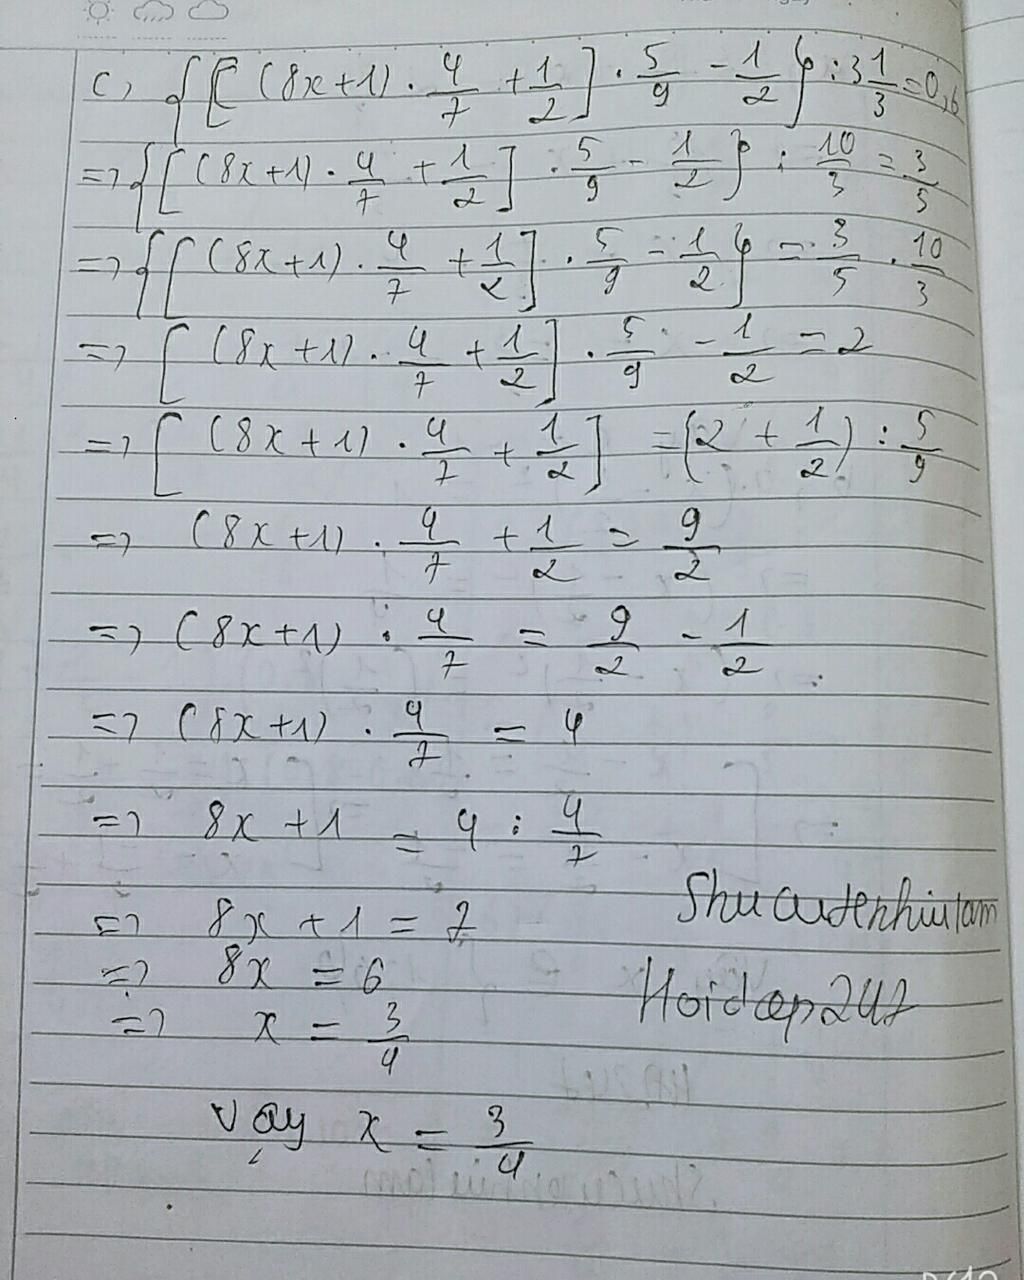 c, {[(8x+1) · 4/7 + 1/2] · 5/9 - 1/2} : 3 1/3 = 0,6
=> {[(8x+1) · 4/7 + 1/2] · 5/9 - 1/2} : 10/3 = 3/5
=> {[(8x+1) · 4/7 + 1/2] · 5/9 - 1/2} = 3/5 · 10/3
=> [(8x+1) · 4/7 + 1/2] · 5/9 - 1/2 = 2
=> [(8x+1) · 4/7 + 1/2] = (2 + 1/2) : 5/9
=> (8x+1) · 4/7 + 1/2 = 9/2
=> (8x+1) · 4/7 = 9/2 - 1/2
=> (8x+1) · 4/7 = 4
=> 8x + 1 = 4 : 4/7
=> 8x + 1 = 7
=> 8x = 6
=> x = 3/4
Vậy x = 3/4
Hoidap247